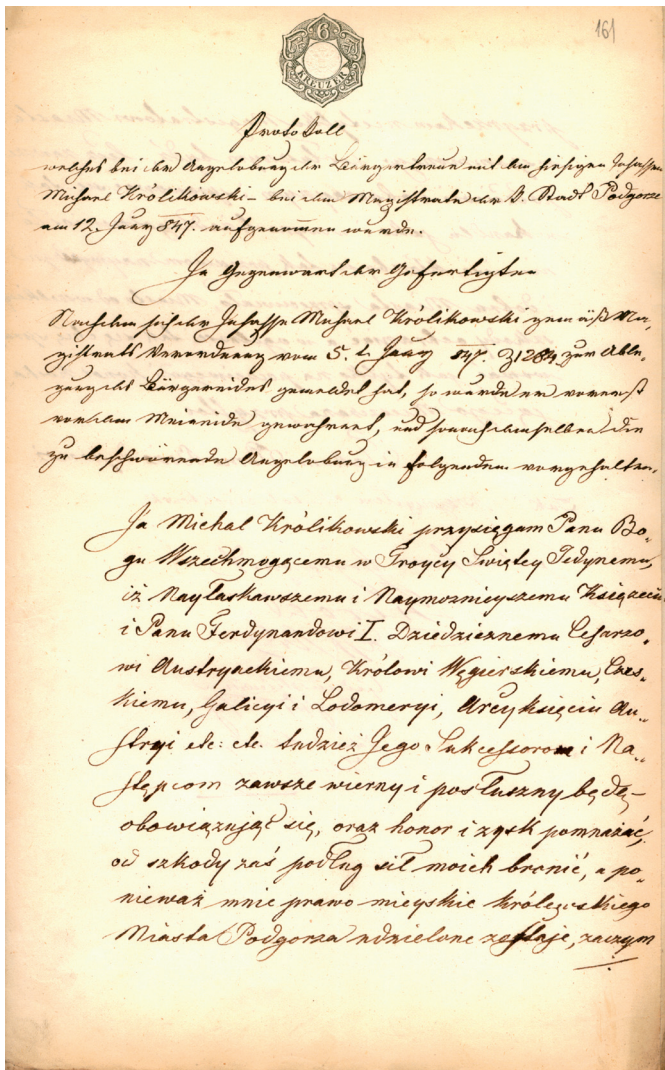 161
6
KREUZER
Protokoll
welches bei der Angelobung der Bürgertreue mit dem hiesigen Insassen
Michael Królikowski – bei dem Magistrate der k. Stadt Podgorze
am 12. Juny 847. aufgenommen wurde.
In Gegenwart der Gefertigten
Nachdem sich der Insasse Michael Królikowski gemäß Ma-
gistrats Verordnung vom 5. l. Juny 847. Z 1284 zur Able-
gung des Bürgereides gemeldet hat, so wurde er vorerst
vor dem Meineide gewarnet, und sonach demselben die
zu beschwörende Angelobung in folgendem vorgehalten.
Ja Michal Królikowski przysięgam Panu Bo-
gu Wszechmogącemu w Troycy Swiętey Jedynemu,
iż Nayłaskawszemu i Naymoznieyszemu Księzeciu
i Panu Ferdynandowi I. Dziedzicznemu Cesarzo-
wi Austryackiemu, Królowi Węgierskiemu, Czes-
kiemu, Galicyi i Lodomeryi, Arcyksięciu Au-
stryi etc: etc. tudzież Jego Sukcessorom i Na-
stępcom zawsze wierny i posłuszny będę –
obowiązując się, oraz honor i zysk pomnażać,
od szkody zaś podług sił moich bronić, a po-
nieważ mnie prawo mieyskie królewskiego
Miasta Podgorza udzielone zostaje, zaczym